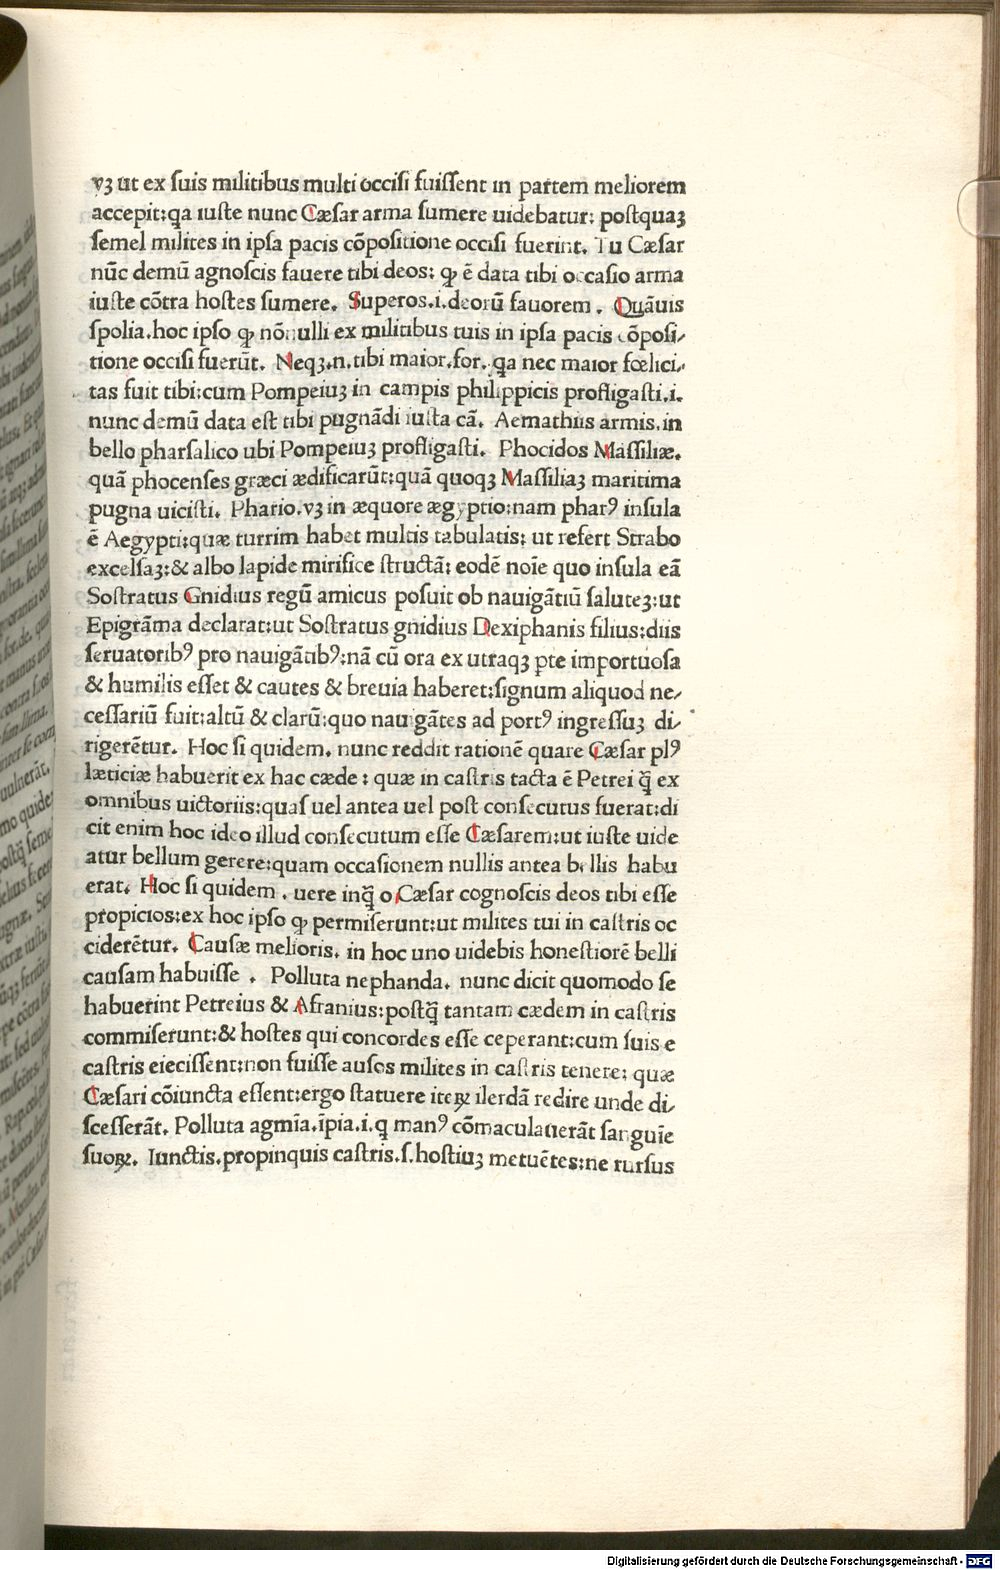 vꝫ ut ex suis militibus multi occisi fuissent in partem meliorem
accepit:qa iuste nunc Cæsar arma sumere uidebatur: postquaꝫ
semel milites in ipsa pacis cōpositione occisi fuerint. Tu Cæsar
nūc demū agnoscis fauere tibi deos: ꝙ ē data tibi occasio arma
iuste cōtra hostes sumere. Superos.i.deorū fauorem. Quāuis
spolia.hoc ipso ꝙ nōnulli ex militibus tuis in ipsa pacis cōposi/
tione occisi fuerūt. Neqꝫ.n.tibi maior.for. qa nec maior fœlici/
tas fuit tibi:cum Pompeiuꝫ in campis philippicis profligasti.i.
nunc demū data est tibi pugnādi iusta cā. Aemathiis armis.in
bello pharsalico ubi Pompeiuꝫ profligasti. Phocidos Massiliæ.
quā phocenses græci ædificarūt:quā quoqꝫ Massiliaꝫ maritima
pugna uicisti. Phario.vꝫ in æquore ægyptio:nam pharꝰ insula
ē Aegypti:quæ turrim habet multis tabulatis: ut refert Strabo
excelsaꝫ:& albo lapide mirifice structā: eodē noīe quo insula eā
Sostratus Gnidius regū amicus posuit ob nauigātiū saluteꝫ:ut
Epigrāma declarat:ut Sostratus gnidius Dexiphanis filius:diis
seruatoribꝰ pro nauigātibꝰ:nā cū ora ex utraqꝫ ꝑte importuosa
& humilis esset & cautes & breuia haberet:signum aliquod ne/
cessariū fuit:altū & clarū:quo nauigātes ad portꝰ ingressuꝫ di/
rigerētur. Hoc si quidem. nunc reddit rationē quare Cæsar plꝰ
læticiæ habuerit ex hac cæde: quæ in castris tacta ē Petrei q̄ ex
omnibus uictoriis:quas uel antea uel post consecutus fuerat:di
cit enim hoc ideo illud consecutum esse Cæsarem:ut iuste uide
atur bellum gerere:quam occasionem nullis antea bellis habu
erat. Hoc si quidem. uere inq̄ o Cæsar cognoscis deos tibi esse
propicios:ex hoc ipso ꝙ permiserunt:ut milites tui in castris oc
ciderētur. Causæ melioris. in hoc uno uidebis honestiorē belli
causam habuisse. Polluta nephanda. nunc dicit quomodo se
habuerint Petreius & Afranius:postq̄ tantam cædem in castris
commiserunt:& hostes qui concordes esse ceperant:cum suis e
castris eiecissent:non fuisse ausos milites in castris tenere: quæ
Cæsari cōiuncta essent:ergo statuere iteꝝ ilerdā redire unde di/
scesserāt. Polluta agmīa.īpia.i.q manꝰ cōmaculauerāt sanguīe
suoꝝ. Iunctis.propinquis castris.s.hostiuꝫ metuētes:ne rursus
Digitalisierung gefördert durch die Deutsche Forschungsgemeinschaft - DFG